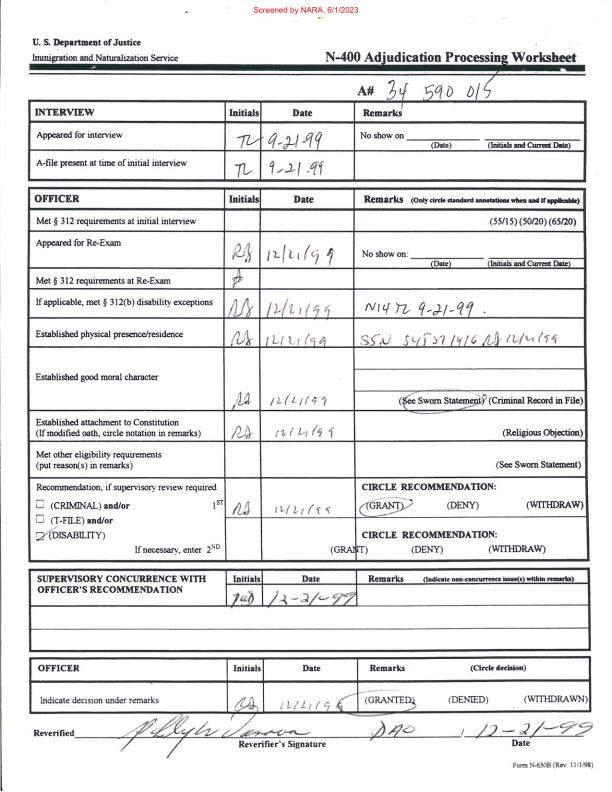 Screened by NARA, 6/1/2023
U. S. Department of Justice
Immigration and Naturalization Service
N-400 Adjudication Processing Worksheet
A# 34 590 015
INTERVIEW Initials Date Remarks
Appeared for interview TL 9-21-99 No show on
(Date) (Initials and Current Date)
A-file present at time of initial interview TL 9-21-99
OFFICER Initials Date Remarks (Only circle standard annotations when and if applicable)
Met § 312 requirements at initial interview (55/15) (50/20) (65/20)
Appeared for Re-Exam 12/21/99 No show on:
(Date) (Initials and Current Date)
Met § 312 requirements at Re-Exam
If applicable, met § 312(b) disability exceptions 12/21/99 N14 TL 9-21-99.
Established physical presence/residence 12/21/99 SSN 12/21/99
Established good moral character 12/21/99
(See Sworn Statement) (Criminal Record in File)
Established attachment to Constitution
(If modified oath, circle notation in remarks) 12/21/99 (Religious Objection)
Met other eligibility requirements
(put reason(s) in remarks) (See Sworn Statement)
Recommendation, if supervisory review required CIRCLE RECOMMENDATION:
(CRIMINAL) and/or 1ST 12/21/99 (GRANT) (DENY) (WITHDRAW)
(T-FILE) and/or
(DISABILITY) CIRCLE RECOMMENDATION:
If necessary, enter 2ND (GRANT) (DENY) (WITHDRAW)
SUPERVISORY CONCURRENCE WITH Initials Date Remarks (Indicate non-concurrence issue(s) within remarks)
OFFICER'S RECOMMENDATION 12-21-99
OFFICER Initials Date Remarks (Circle decision)
Indicate decision under remarks 12/21/99 (GRANTED) (DENIED) (WITHDRAWN)
Reverified DAO 12-21-99
Reverifier's Signature Date
Form N-650B (Rev 11/1/98)